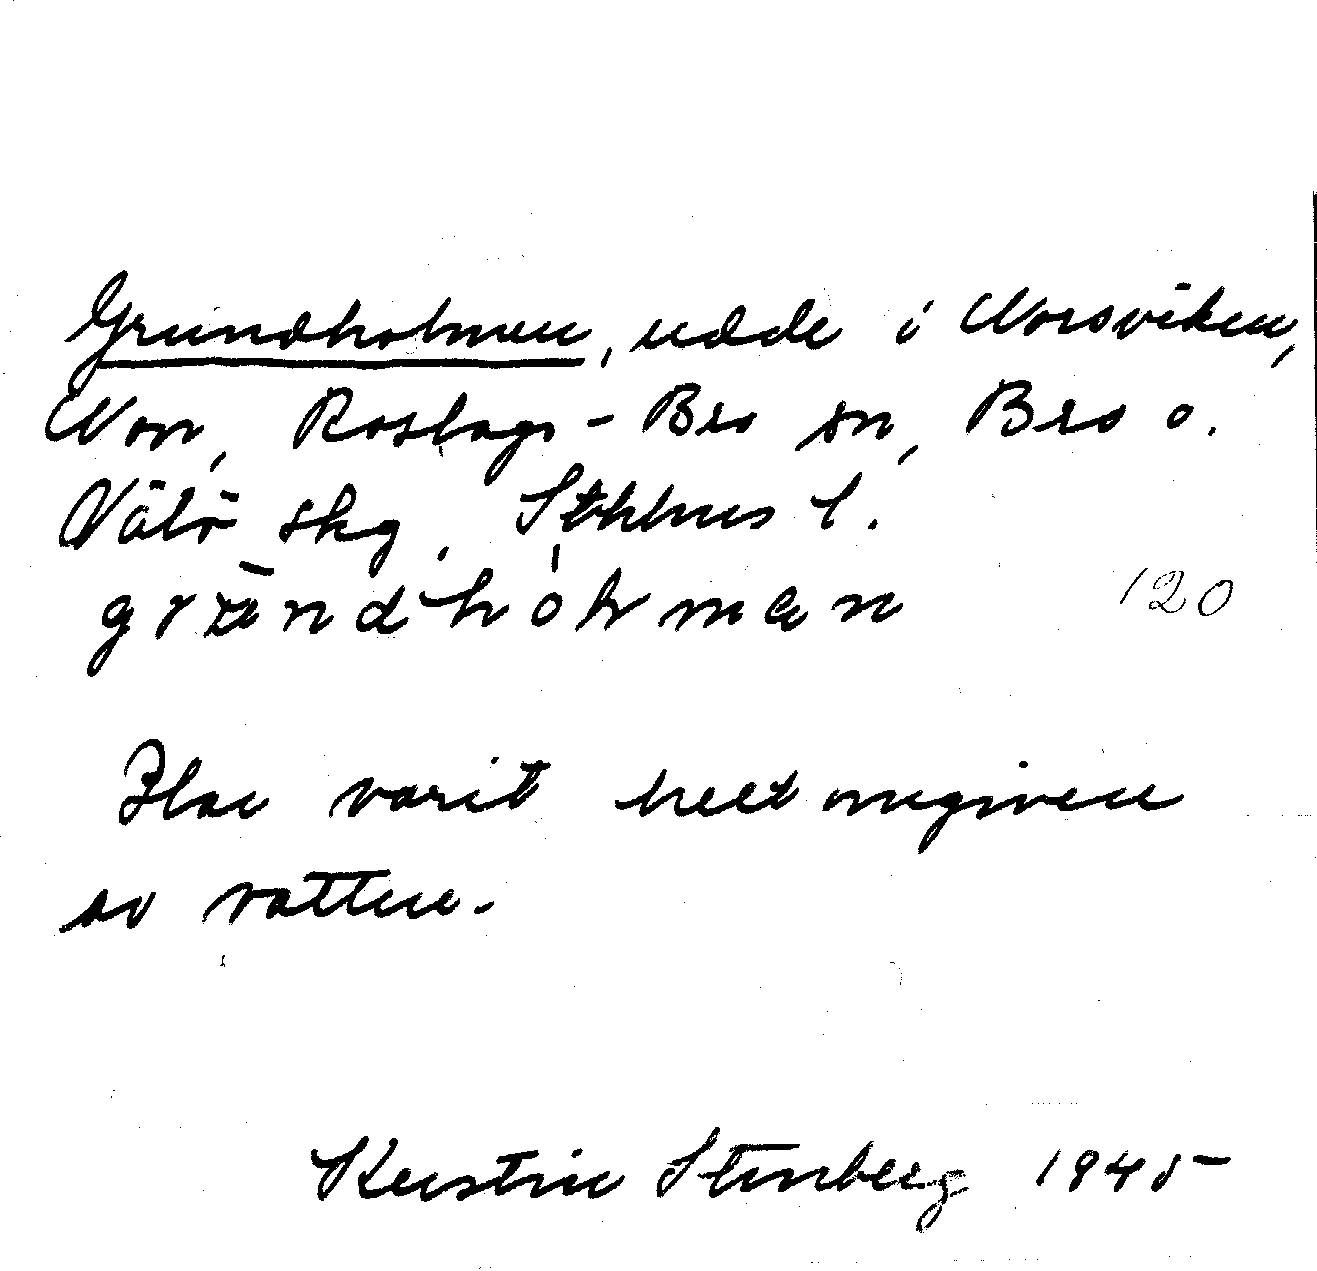 Grundholmen, udde i Norsviken,
Nor, Roslags-Bro sn, Bro o.
Vätö skg, Sthlms l.
120
Har varit helt omgiven
av vatten.
Kerstin Stenberg 1945